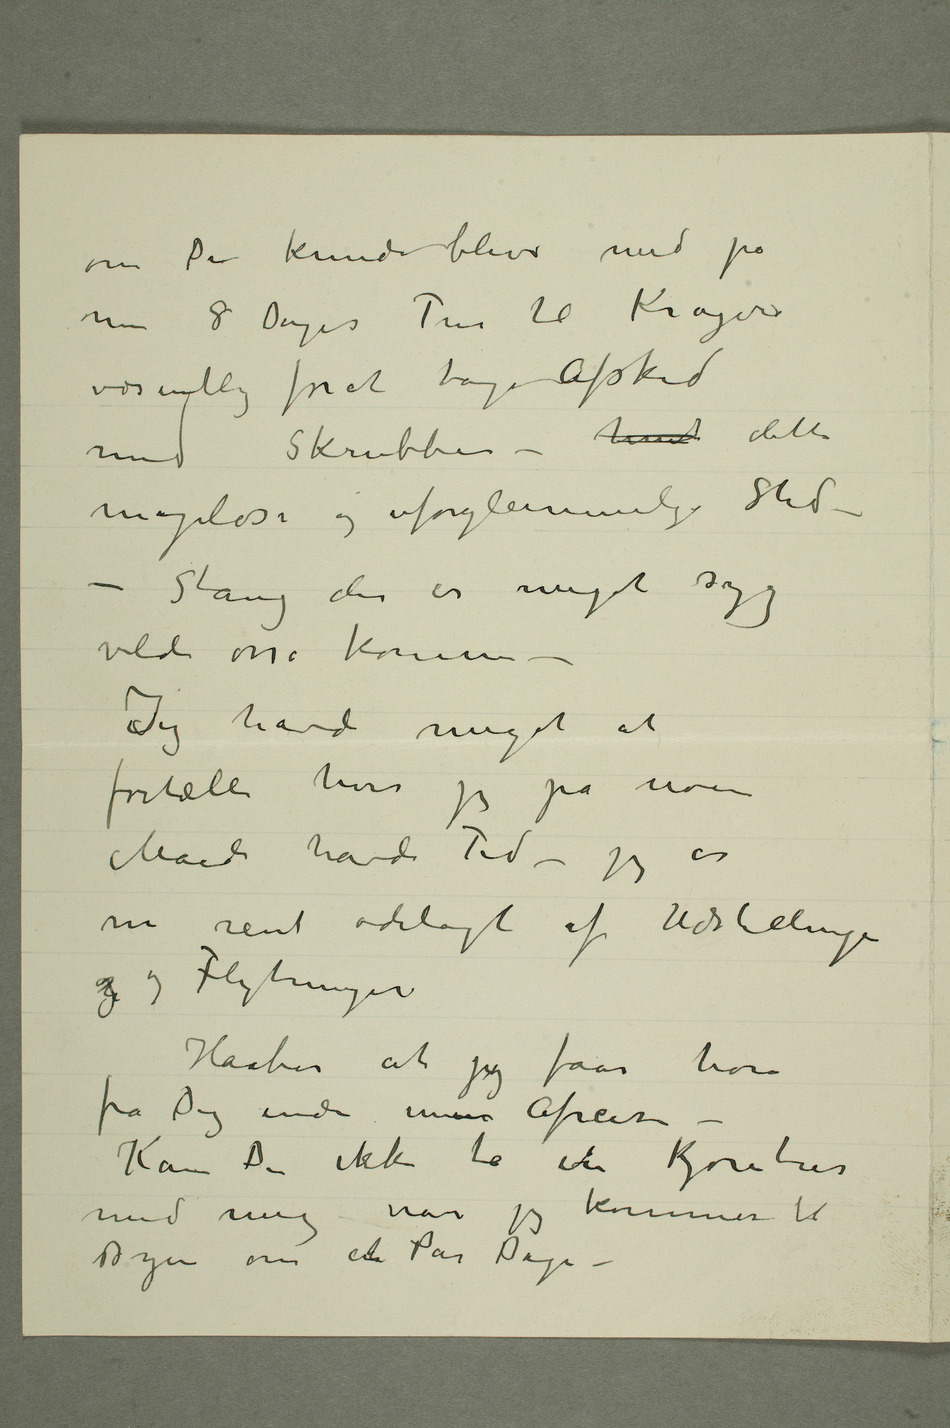 om Du kunde blive med på
nu 8 Dages Tur til Kragerø
væsentlig forat tage Afsked
med Skrubben – dette
mageløse og uforglemmelige Sted –
– Stang der er meget syg
vilde osså komme –
Jeg havde meget at
fortælle hvis jeg på noen
Maade havde Tid – jeg er
nu rent ødelagt af Udstillinger
og Flytninger
Haaber at jeg faar høre
fra Dig inden min Afreise –
Kan Du ikke ta en Kjøretur
med mig når jeg kommer til
Byen om et Par Dage –